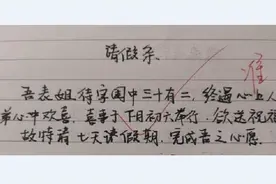 请假条
准
吾表姐待字闺中三十有二，终遇心上人
单心中欢喜，喜事于下月初六举行，欲送祝福
故特请七天课假期，完成吾之心愿。